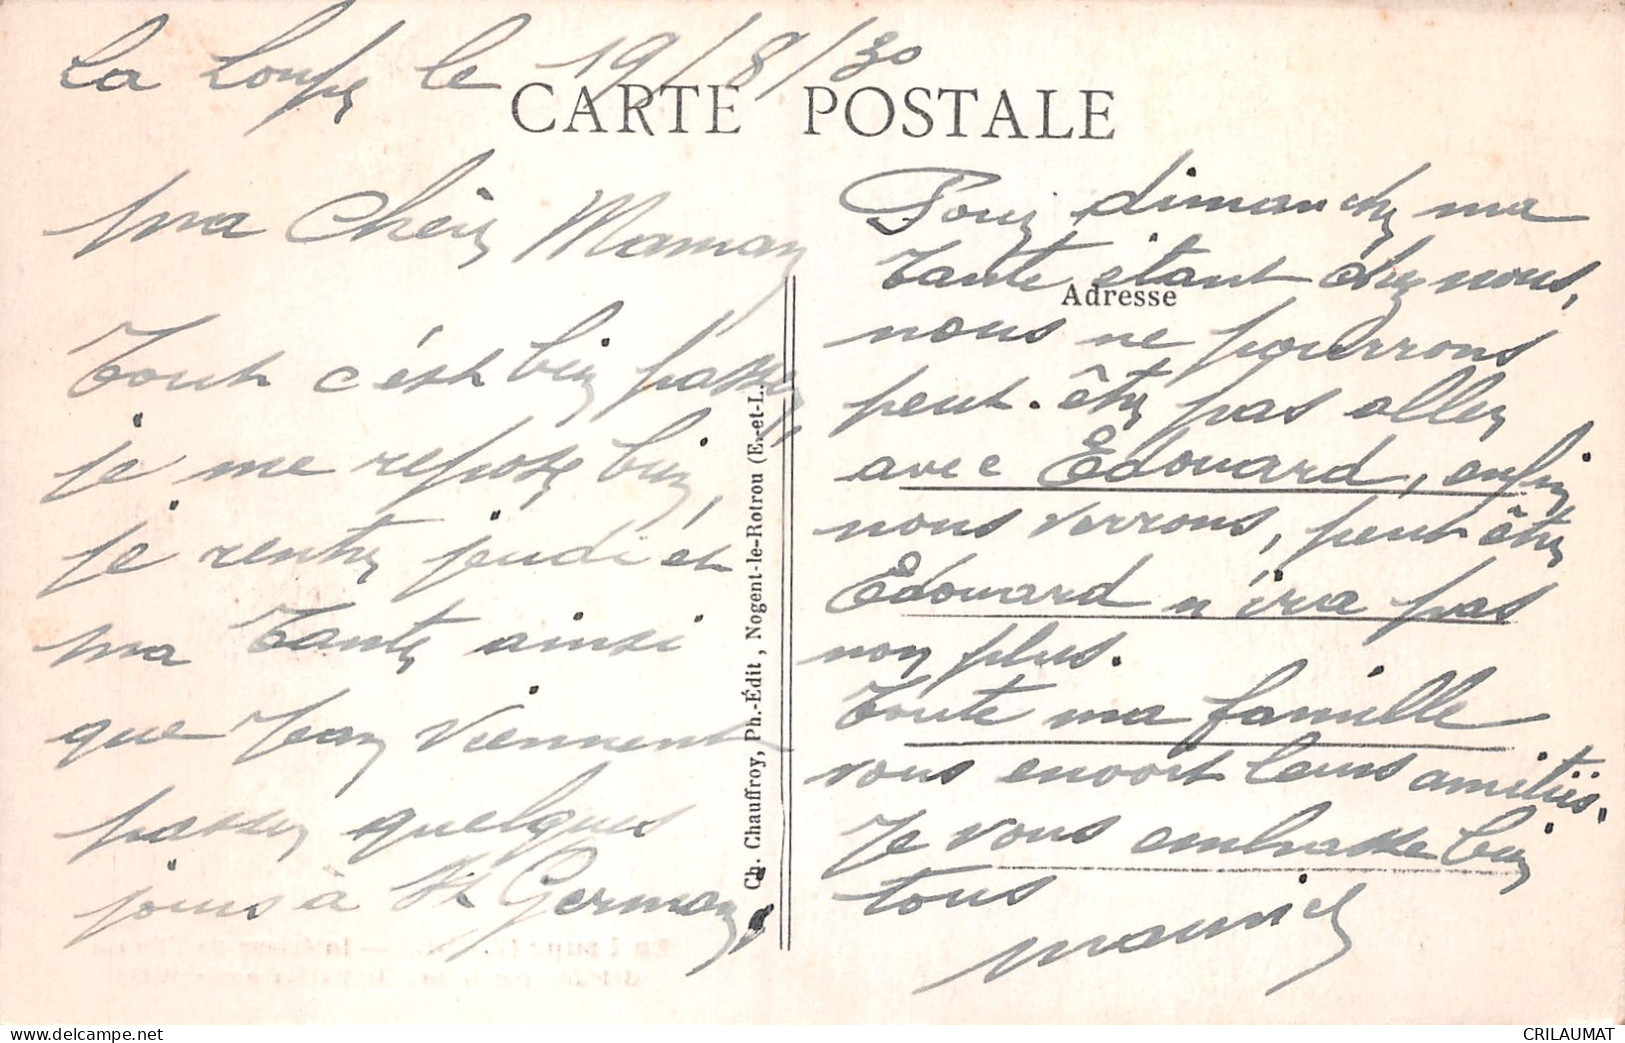 La Loupe le 19/8/30
CARTE POSTALE
Ma Chère Maman
Tout c'est bien passé,
je me repose bien,
je rentre jeudi et
ma Tante ainsi
que Jean viennent
passer quelques
jours à St Germain
Ch. Chauffroy, Ph.-Édit, Nogent-le-Rotrou (E.-et-L.)
Pour dimanche ma
Tante étant chez nous,
Adresse
nous ne pourrons
peut-être pas aller
avec Edouard, enfin
nous verrons, peut être
Edouard n'ira pas
non plus.
Toute ma famille
vous envoit leurs amitiés.
Je vous embrasse bien
tous
Maurice
https://www.delcampe.net
CRILAUMAT